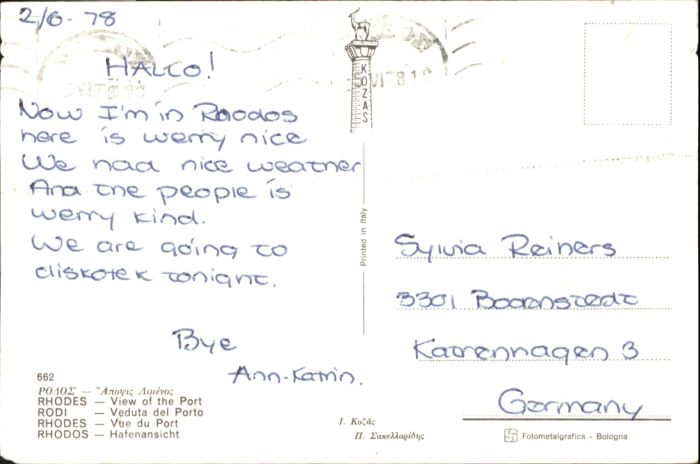 2/6-78
HALLO!
Now I'm in Rhodos
here is werry nice
We had nice weather
And the people is
werry kind.
We are going to
diskotek tonight.
Bye
Ann-Katrin.
Sylvia Reiners
3301 Bodenstedt
Katrenhagen 3
Germany
Printed in Italy
KOZAS
662
ΡΟΔΟΣ — Ἄποψις Λιμένος
RHODES — View of the Port
RODI — Veduta del Porto
RHODES — Vue du Port
RHODOS — Hafenansicht
Ι. Κοζᾶς
Π. Σακελλαρίδης
Fotometalgrafica - Bologna